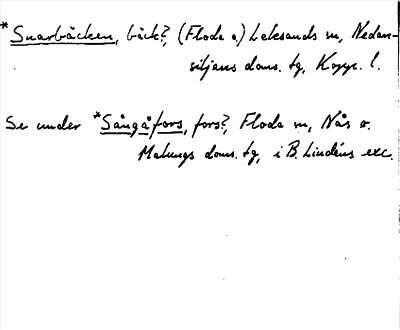 *Snarbäcken, bäck?, (Floda o.) Leksands sn, Nedan-
siljans doms. tg, Kopp. l.
Se under *Sångåfors, fors?, Floda sn, Nås o.
Malungs doms. tg, i B. Lindéns exc.